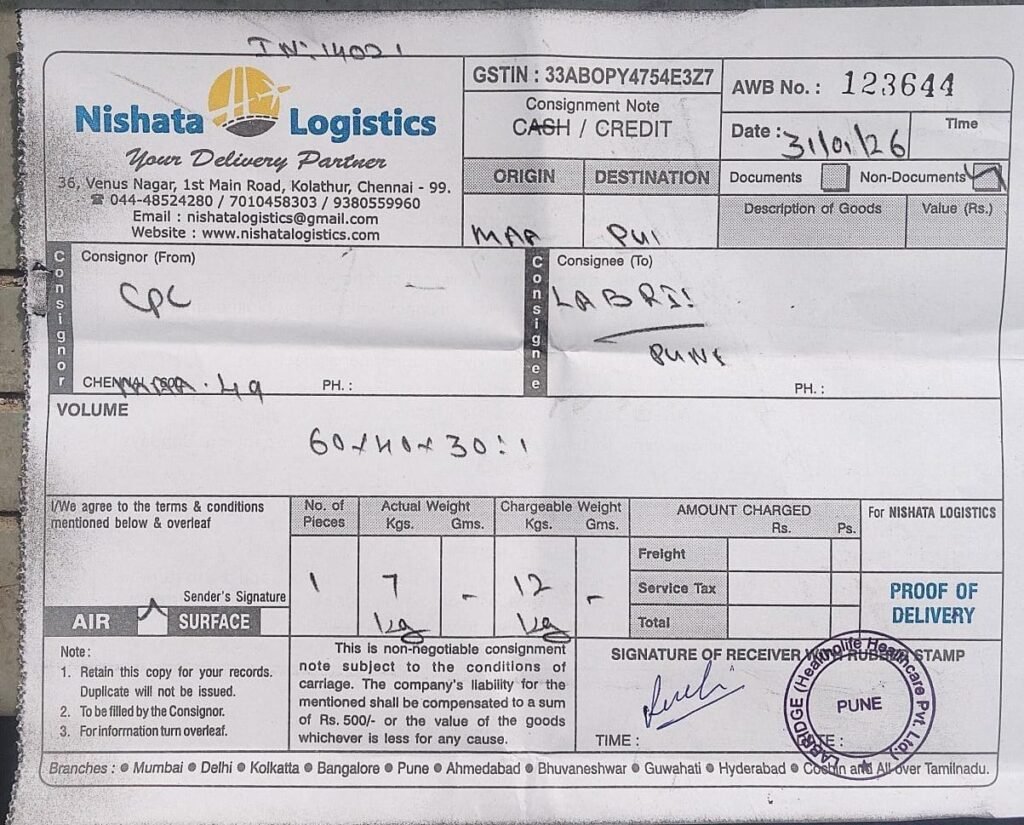 IN: 14021
Nishata Logistics
Your Delivery Partner
36, Venus Nagar, 1st Main Road, Kolathur, Chennai - 99.
☎ 044-48524280 / 7010458303 / 9380559960
Email : nishatalogistics@gmail.com
Website : www.nishatalogistics.com
GSTIN : 33ABOPY4754E3Z7
Consignment Note
CASH / CREDIT
ORIGIN DESTINATION
MAA PUI
AWB No. : 123644
Date : 31/01/26 Time
Documents Non-Documents
Description of Goods Value (Rs.)
Consignor
Consignor (From)
CPC
CHENNAI MAA. 49 PH. :
Consignee
Consignee (To)
LABRI
PUNE
PH. :
VOLUME
60x40x30:1
I/We agree to the terms & conditions
mentioned below & overleaf
Sender's Signature
AIR SURFACE
No. of Pieces
1
Actual Weight
Kgs. Gms.
7 -
kg
Chargeable Weight
Kgs. Gms.
12 -
kg
AMOUNT CHARGED
Rs. Ps.
Freight
Service Tax
Total
For NISHATA LOGISTICS
PROOF OF
DELIVERY
Note :
1. Retain this copy for your records.
Duplicate will not be issued.
2. To be filled by the Consignor.
3. For information turn overleaf.
This is non-negotiable consignment
note subject to the conditions of
carriage. The company's liability for the
mentioned shall be compensated to a sum
of Rs. 500/- or the value of the goods
whichever is less for any cause.
SIGNATURE OF RECEIVER WITH RUBBER STAMP
TIME :
LABRIDGE (Healthplife Healthcare Pvt. Ltd.)
PUNE
Branches : ● Mumbai ● Delhi ● Kolkatta ● Bangalore ● Pune ● Ahmedabad ● Bhuvaneshwar ● Guwahati ● Hyderabad ● Cochin and All over Tamilnadu.